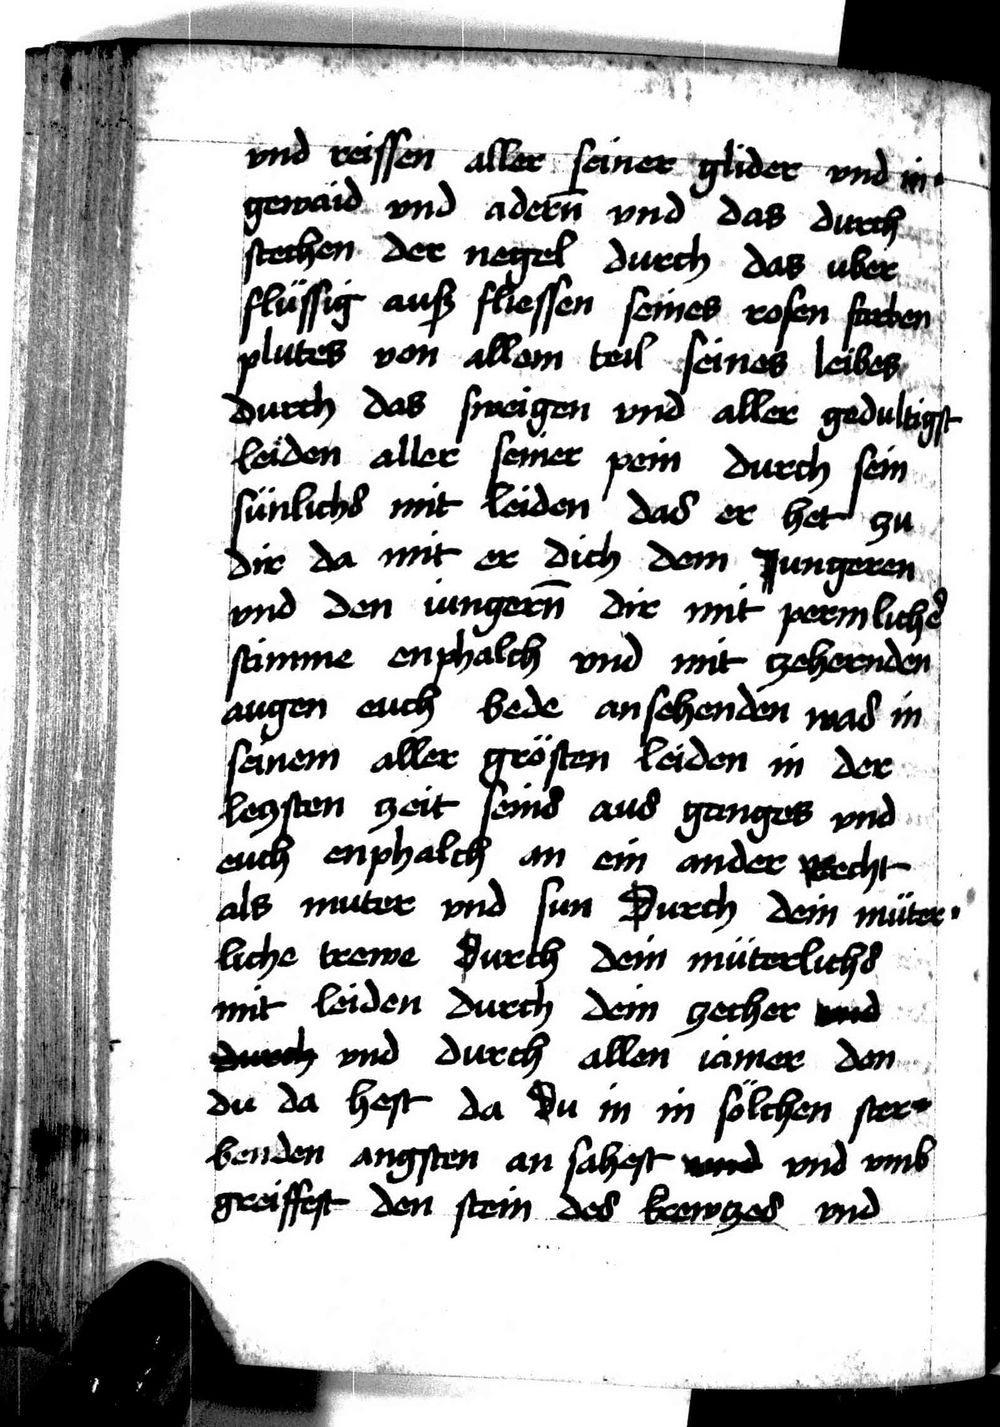 vnd reissen aller seiner glider vnd in⸗
gewaid vnd adern̄ vnd das durch
stechen der negel durch das uber
flüssig auß fliessen seines rosen farben
plutes von allem teil seines leibes
durch das sweigen vnd aller gedultigst
leiden aller seiner pein durch sein
sünlichs mit leiden das er het zu
dir da mit er dich dem Jungeren
vnd den iungern̄ dir mit permlicher
stimme enphalch vnd mit zehernden
augen euch bede ansehenden was in
seinem aller grösten leiden in der
letzsten zeit seins aus ganges vnd
euch enphalch an ein ander recht
als muter vnd sun Durch dein müter⸗
liche trewe Durch dein müterlichs
mit leiden durch dein zecher vnd
durch vnd durch allen iamer den
du da hest da Du in in sölchen ster⸗
benden angsten an sahest vnd vnd vmb
greiffest den stein des krewtzes vnd